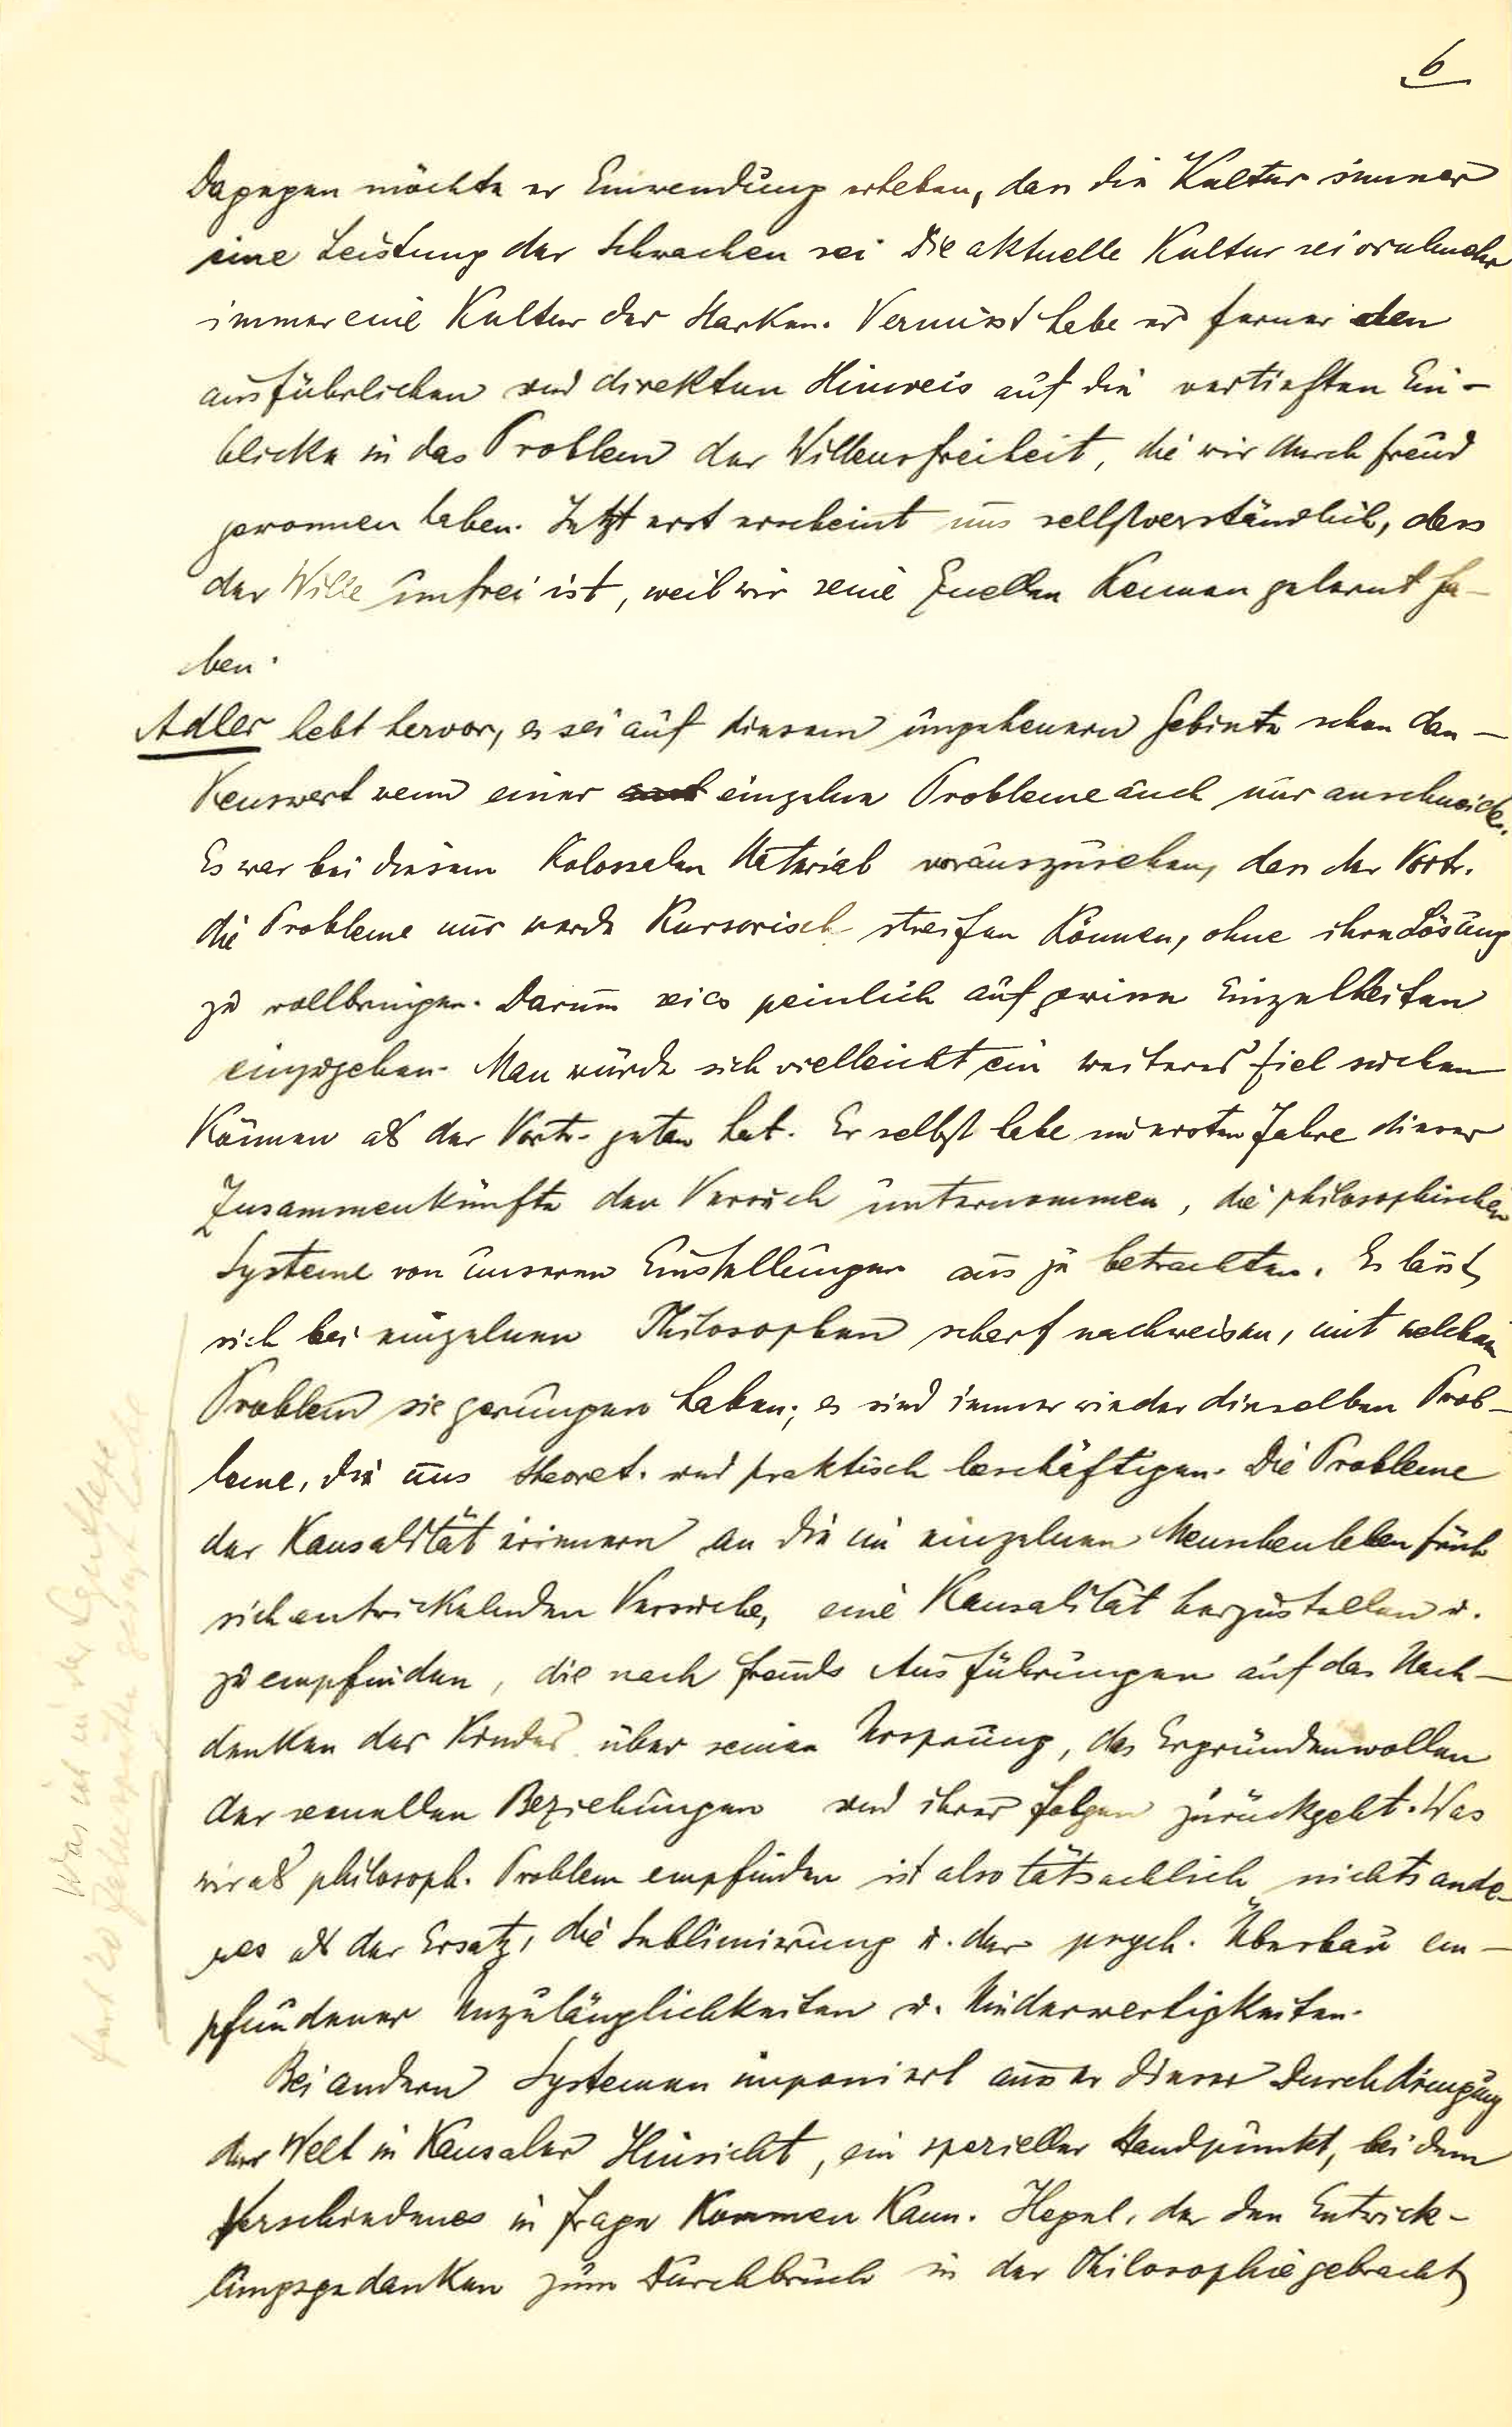 6
Dagegen möchte er Einwendung erheben, dass die Kultur immer
eine Leistung der Schwachen sei Die aktuelle Kultur sei vielmehr
immer eine Kultur der Starken. Vermisst habe er ferner den
ausführlichen und direkten Hinweis auf die vertieften Ein-
blicke in das Problem der Willensfreiheit, die wir durch Freud
gewonnen haben. Jetzt erst erscheint uns selbstverständlich, dass
der Wille unfrei ist, weil wir seine Quellen kennen gelernt ha-
ben.
Adler hebt hervor, es sei auf diesem ungeheuren Gebiete schon dan-
kenswert wenn einer einzelne Probleme auch nur anschneide.
Es war bei diesem kolossalen Material vorauszusehen, dass der Vortr.
die Probleme nur werde kursorisch streifen können, ohne ihre Lösung
zu vollbringen. Darum sei es peinlich auf gewisse Einzelheiten
einzugehen. Man würde sich vielleicht ein weiteres Ziel suchen
können als der Vortr. getan hat. Er selbst habe im ersten Jahre dieser
Zusammenkünfte den Versuch unternommen, die philosophischen
Systeme von unseren Einstellungen aus zu betrachten. Es lässt
sich bei einzelnen Philosophen scharf nachweisen, mit welchem
Problem sie gerungen haben; es sind immer wieder dieselben Prob-
leme, die uns theoret. und praktisch beschäftigen. Die Probleme
der Kausalität erinnern an die im einzelnen Menschenleben früh
sich entwickelnden Versuche, eine Kausalität herzustellen u.
zu empfinden, die nach Freuds Ausführungen auf das Nach-
denken des Kindes über seinen Ursprung, das Ergründenwollen
der sexuellen Beziehungen und ihrer Folgen zurückgeht. Was
wir als philosoph. Problem empfinden ist also tatsächlich nichts ande-
res als der Ersatz, die Sublimierung u. der psych. Überbau em-
pfundener Unzulänglichkeiten u. Minderwertigkeiten.
Bei andern Systemen imponiert ausser dieser Durchdringung
der Welt in kausaler Hinsicht, ein spezieller Standpunkt, bei dem
Verschiedenes in Frage kommen kann. Hegel, der den Entwick-
lungsgedanken zum Durchbruch in der Philosophie gebracht
Was ich in der
fast 20 Jahre später gesagt habe